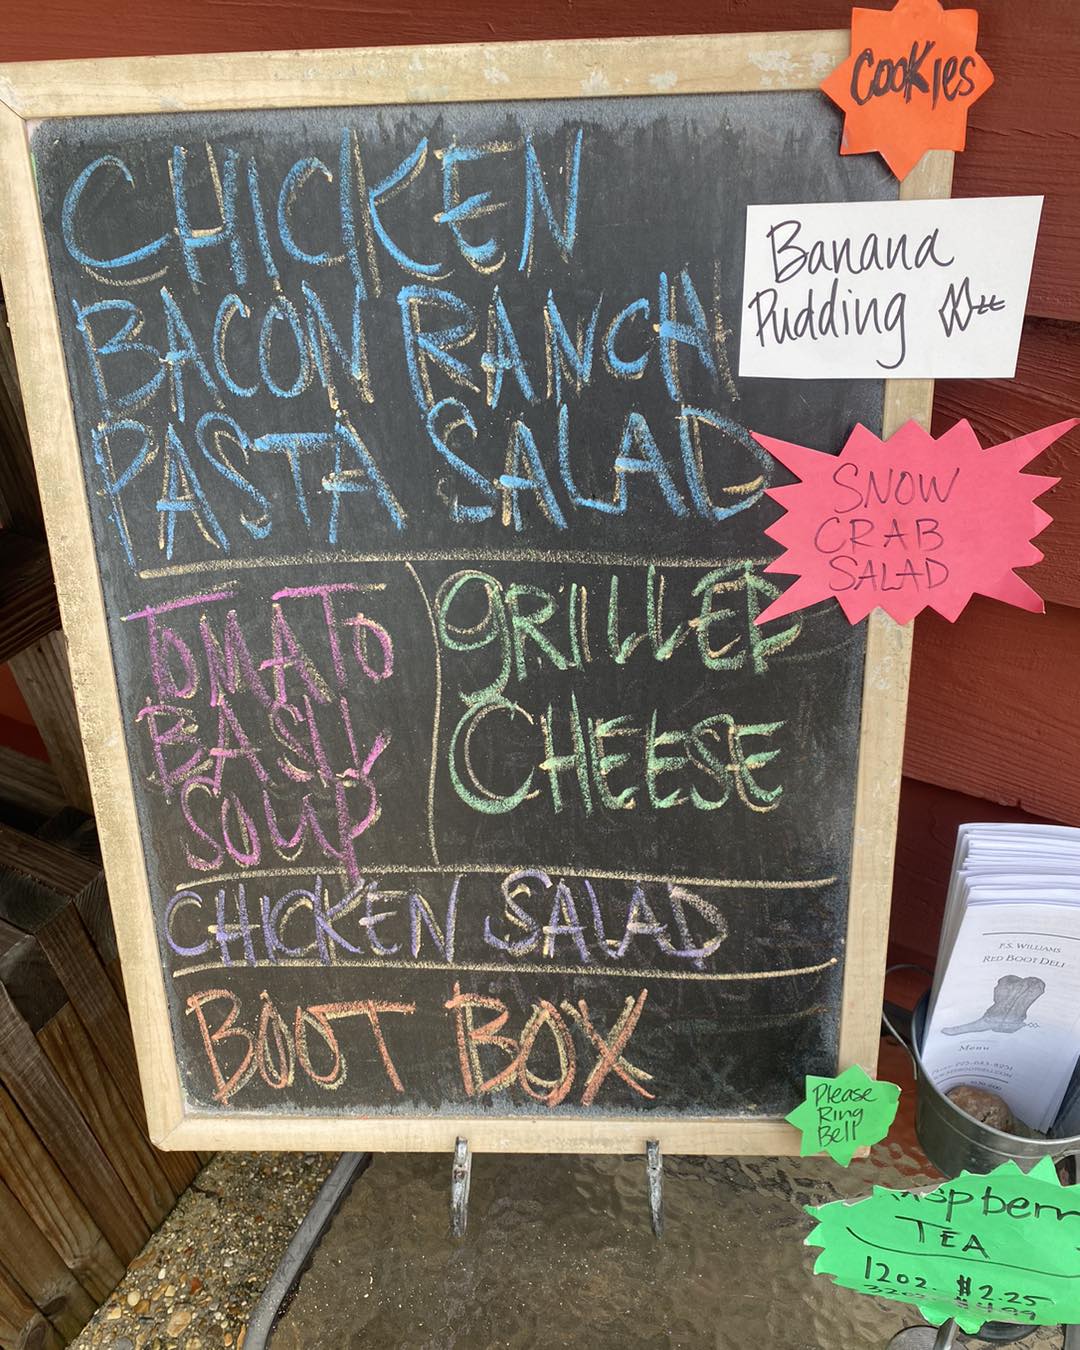 Cookies
CHICKEN
BACON RANCH
PASTA SALAD
Banana
Pudding
SNOW
CRAB
SALAD
TOMATO
BASIL
SOUP
GRILLED
CHEESE
CHICKEN SALAD
BOOT BOX
F.S. WILLIAMS
RED BOOT DELI
Menu
Please
Ring
Bell
TEA
12oz. $2.25
32oz. $4.99